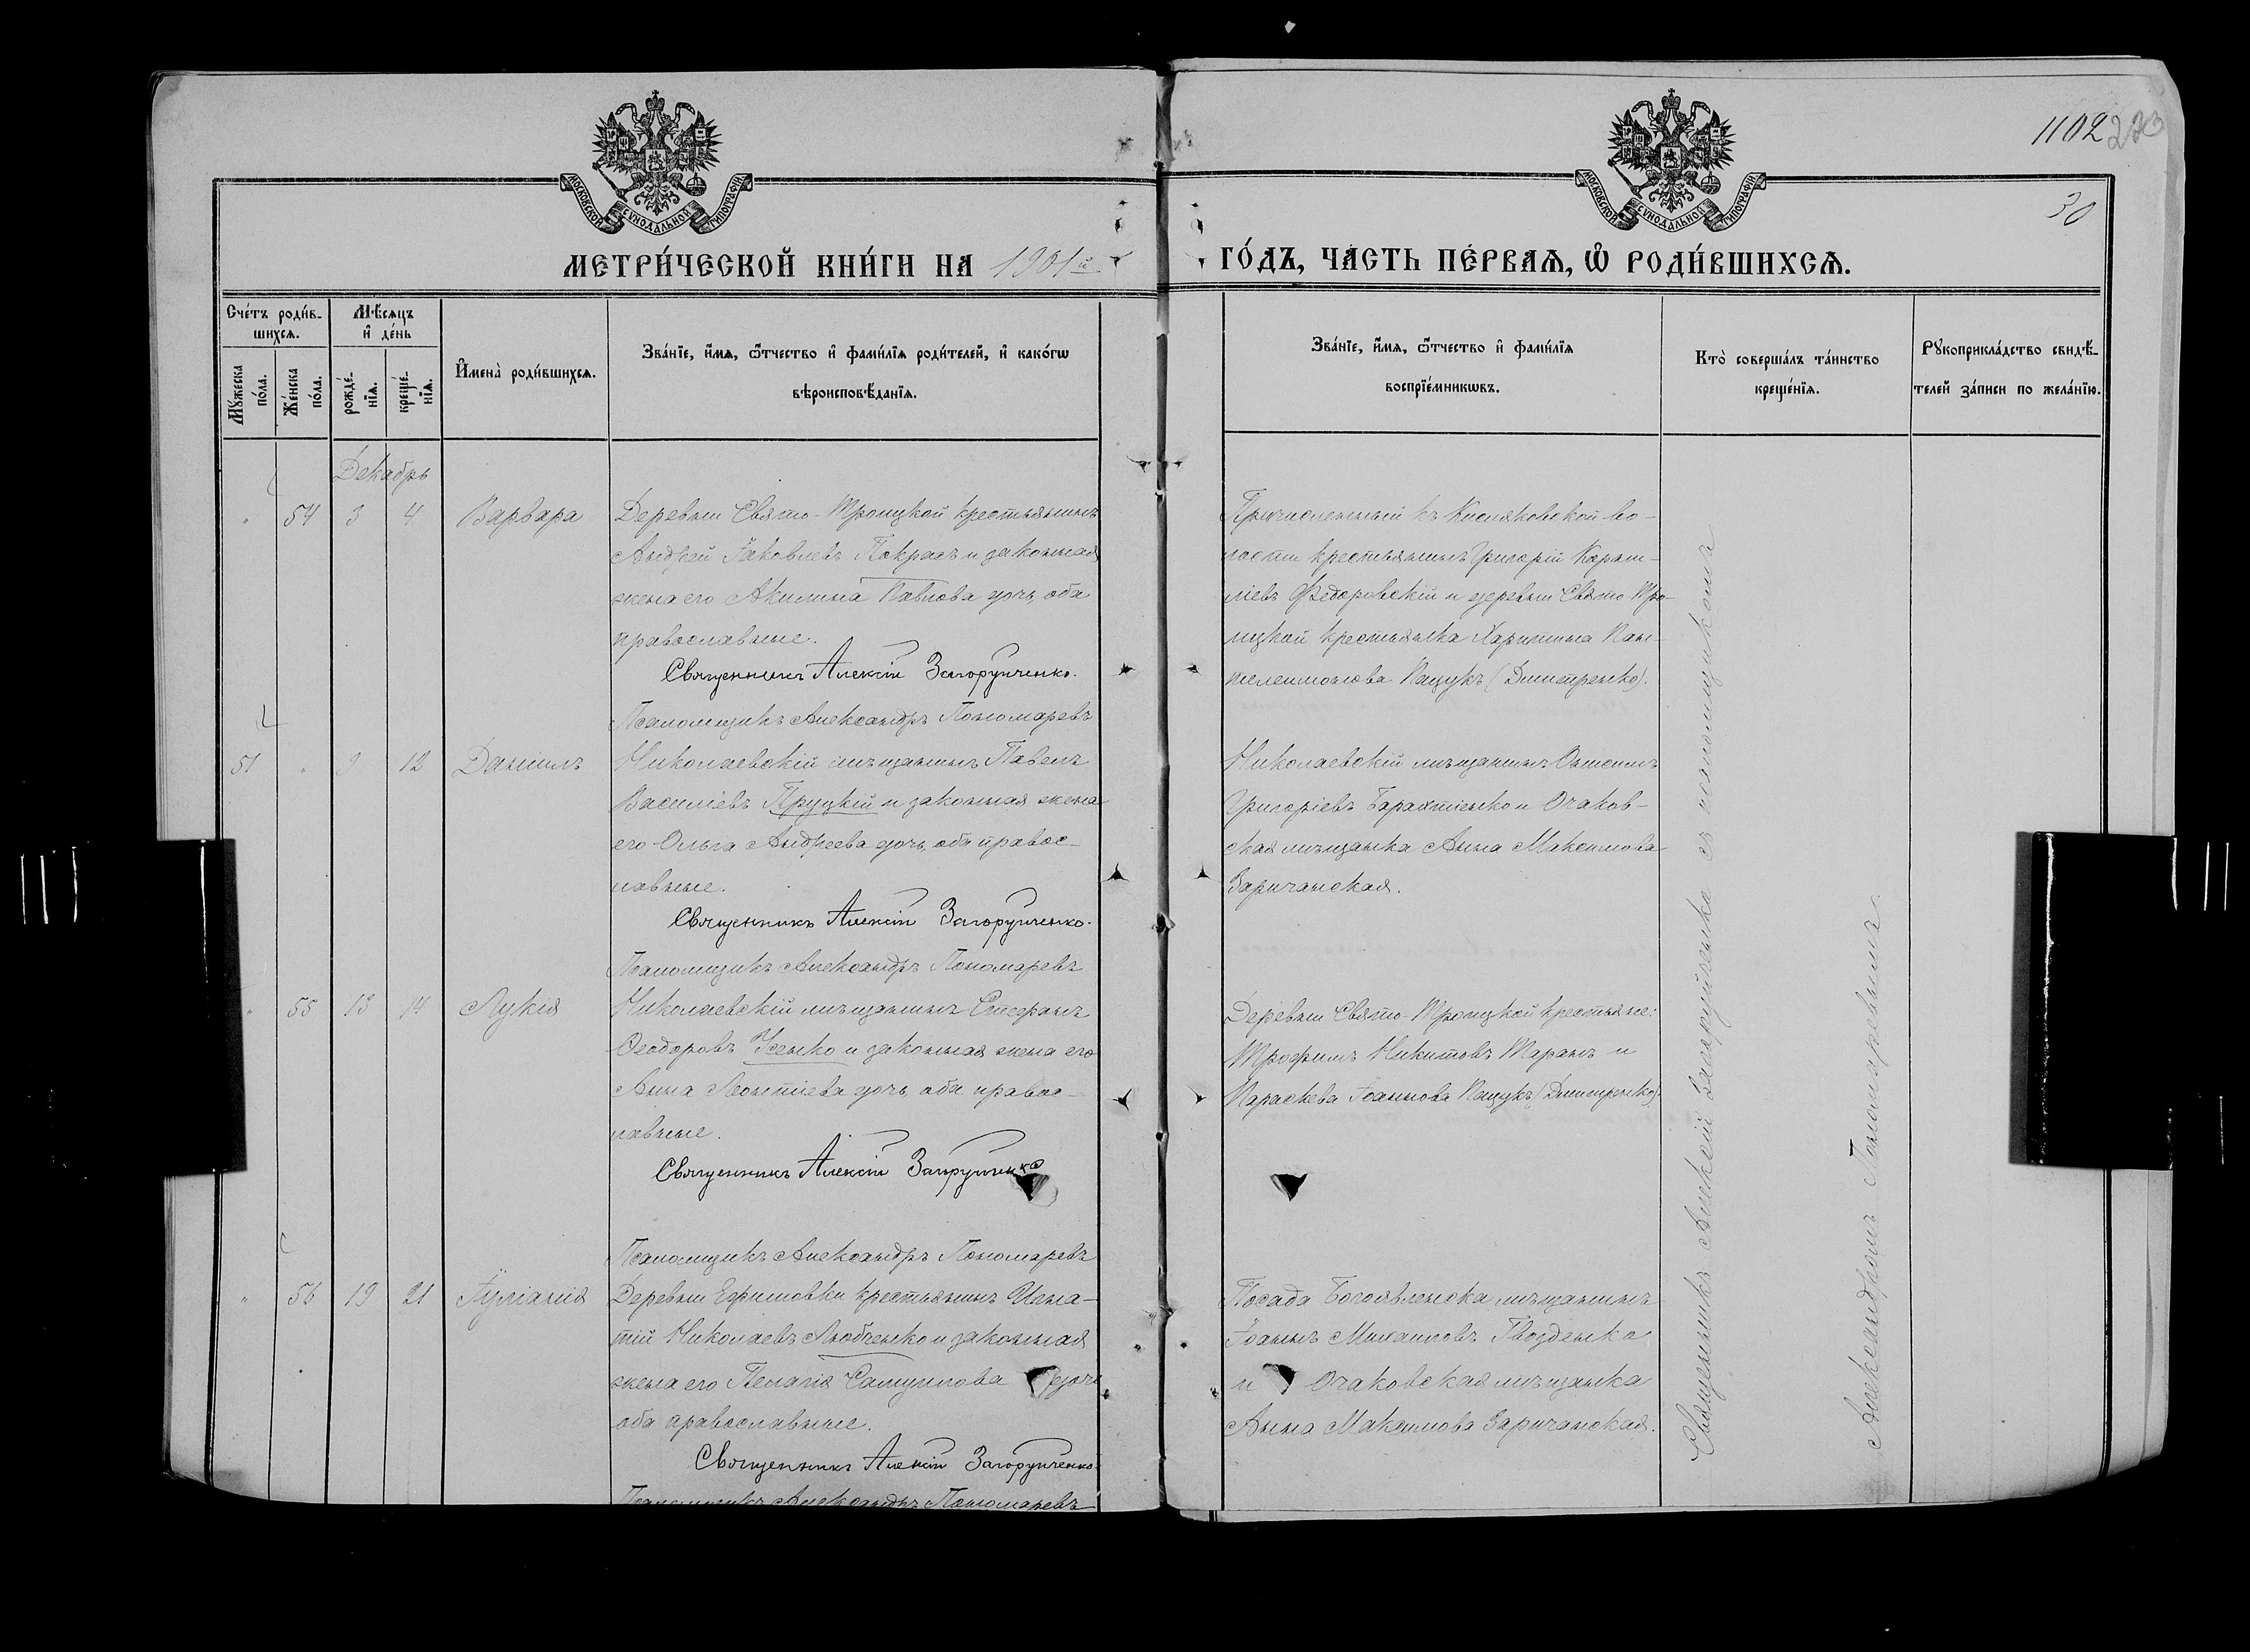 1102 223
30
МОСКОВСКОЙ СѴНОДАЛЬНОЙ ТИПОГРАФІИ
МОСКОВСКОЙ СѴНОДАЛЬНОЙ ТИПОГРАФІИ
МЕТРИ́ЧЕСКОЙ КНИ́ГИ НА 1901й ГО́ДЪ, ЧА́СТЬ ПЕ́РВАѦ, Ѡ҆ РОДИ́ВШИХСѦ.
Сче́тъ роди́в-
шихсѧ.
Мꙋжеска
по́ла.
Же́нска
по́ла.
Мѣ́сѧцъ
и҆ де́нь
рожде́-
нїѧ.
креще́-
нїѧ.
И҆мена̀ роди́вшихсѧ.
Зва́нїе, и҆́мѧ, ѻ҆́тчество и҆ фами́лїѧ роди́телей, и҆ како́гѡ
вѣроисповѣ́данїѧ.
Зва́нїе, и҆́мѧ, ѻ҆́тчество и҆ фами́лїѧ
воспрїе́мникѡвъ.
Кто̀ соверша́лъ та́инство
креще́нїѧ.
Рꙋкоприкла́дство свидѣ́-
телей за́писи по жела́нїю.
Декабрь
" 54 3 4 Варвара
Деревни Свято-Троицкой крестьянинъ
Андрей Іаковлевъ Покрасъ и законная
жена его Акилина Павлова дочь, оба
православные.
Священникъ Алексій Загоруйченко.
Псаломщикъ Александръ Пономаревъ
Причисленный къ Кисляковской во-
лости крестьянинъ Григорій Корни-
ліевъ Ѳедоровскій и деревни Свято Тро-
ицкой крестьянка Харитина Пан-
телеимонова Пащукъ (Димитренко).
51 " 9 12 Даніилъ
Николаевскій мѣщанинъ Павелъ
Василіевъ Пруцкій и законная жена
его Ольга Андреева дочь, оба правос-
лавные.
Священникъ Алексій Загоруйченко.
Псаломщикъ Александръ Пономаревъ
Николаевскій мѣщанинъ Онисимъ
Григоріевъ Барахтіенко и Очаков-
ская мѣщанка Анна Максимова
Заричанская.
" 55 13 14 Лукія
Николаевскій мѣщанинъ Стефанъ
Ѳеодоровъ Усенко и законная жена его
Анна Леонтіева дочь, оба правос-
лавные.
Священникъ Алексій Загоруйченко
Псаломщикъ Александръ Пономаревъ
Деревни Свято-Троицкой крестьяне:
Трофимъ Никитовъ Таранъ и
Параскева Іоаннова Пащукъ (Димитренко).
" 56 19 21 Іуліанія
Деревни Ефимовки крестьянинъ Игна-
тій Николаевъ Любченко и законная
жена его Пелагія Самуилова дочь
оба православные.
Священникъ Алексій Загоруйченко
Псаломщикъ Александръ Пономаревъ
Посада Богоявленска мѣщанинъ
Іоаннъ Михаиловъ Гвозденко
и Очаковская мѣщанка
Анна Максимова Заричанская.
Священникъ Алексій Загоруйченко съ псаломщикомъ
Александромъ Пономаревымъ.